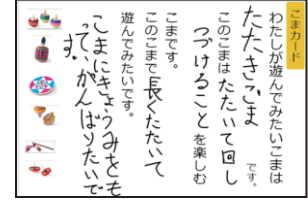 こまカード
わたしが遊んでみたいこまは
たたきごま
です。
このこまはたたいて回し
つづけることを楽しむ
こまです。
このこまで長くたたいて
遊んでみたいです。
こまにきょうみをも
って、がんばりたいで
す。